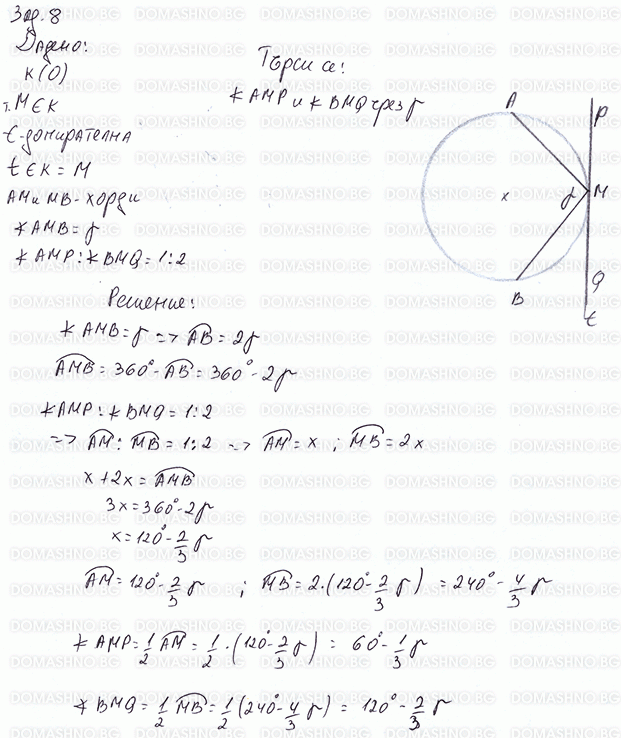 Зад. 8
Дадено:
k(O)
т. M ∈ k
t-допирателна
t ∈ k = M
AM и MB - хорди
∢AMB = γ
∢AMP : ∢BMQ = 1:2
Търси се:
∢AMP и ∢BMQ чрез γ
A
P
x
γ
M
Q
B
t
Решение:
∢AMB = γ => ⌢AB = 2γ
⌢AMB = 360° - ⌢AB = 360° - 2γ
∢AMP : ∢BMQ = 1:2
=> ⌢AM : ⌢MB = 1:2 => ⌢AM = x ; ⌢MB = 2x
x + 2x = ⌢AMB
3x = 360° - 2γ
x = 120° - 2/3 γ
⌢AM = 120° - 2/3 γ ; ⌢MB = 2.(120° - 2/3 γ) = 240° - 4/3 γ
∢AMP = 1/2 ⌢AM = 1/2 .(120° - 2/3 γ) = 60° - 1/3 γ
∢BMQ = 1/2 ⌢MB = 1/2 (240° - 4/3 γ) = 120° - 2/3 γ
DOMASHNO.BG